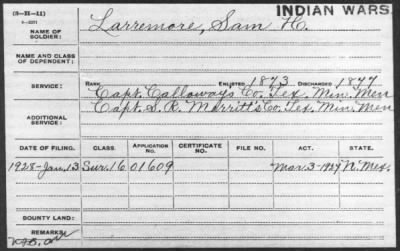 (3-211) INDIAN WARS
NAME OF SOLDIER: Larremore, Sam H.
NAME AND CLASS OF DEPENDENT:
SERVICE: RANK ENLISTED 1873 DISCHARGED 1877
Capt. Calloways Co. Tex. Min. Men
Capt. S. R. Merritt's Co. Tex. Min. Men
ADDITIONAL SERVICE:
DATE OF FILING. CLASS. APPLICATION NO. CERTIFICATE NO. FILE NO. ACT. STATE.
1928-Jan. 13 Sur. 16 01609 Mar. 3-1927 N. Mex.
BOUNTY LAND:
REMARKS: